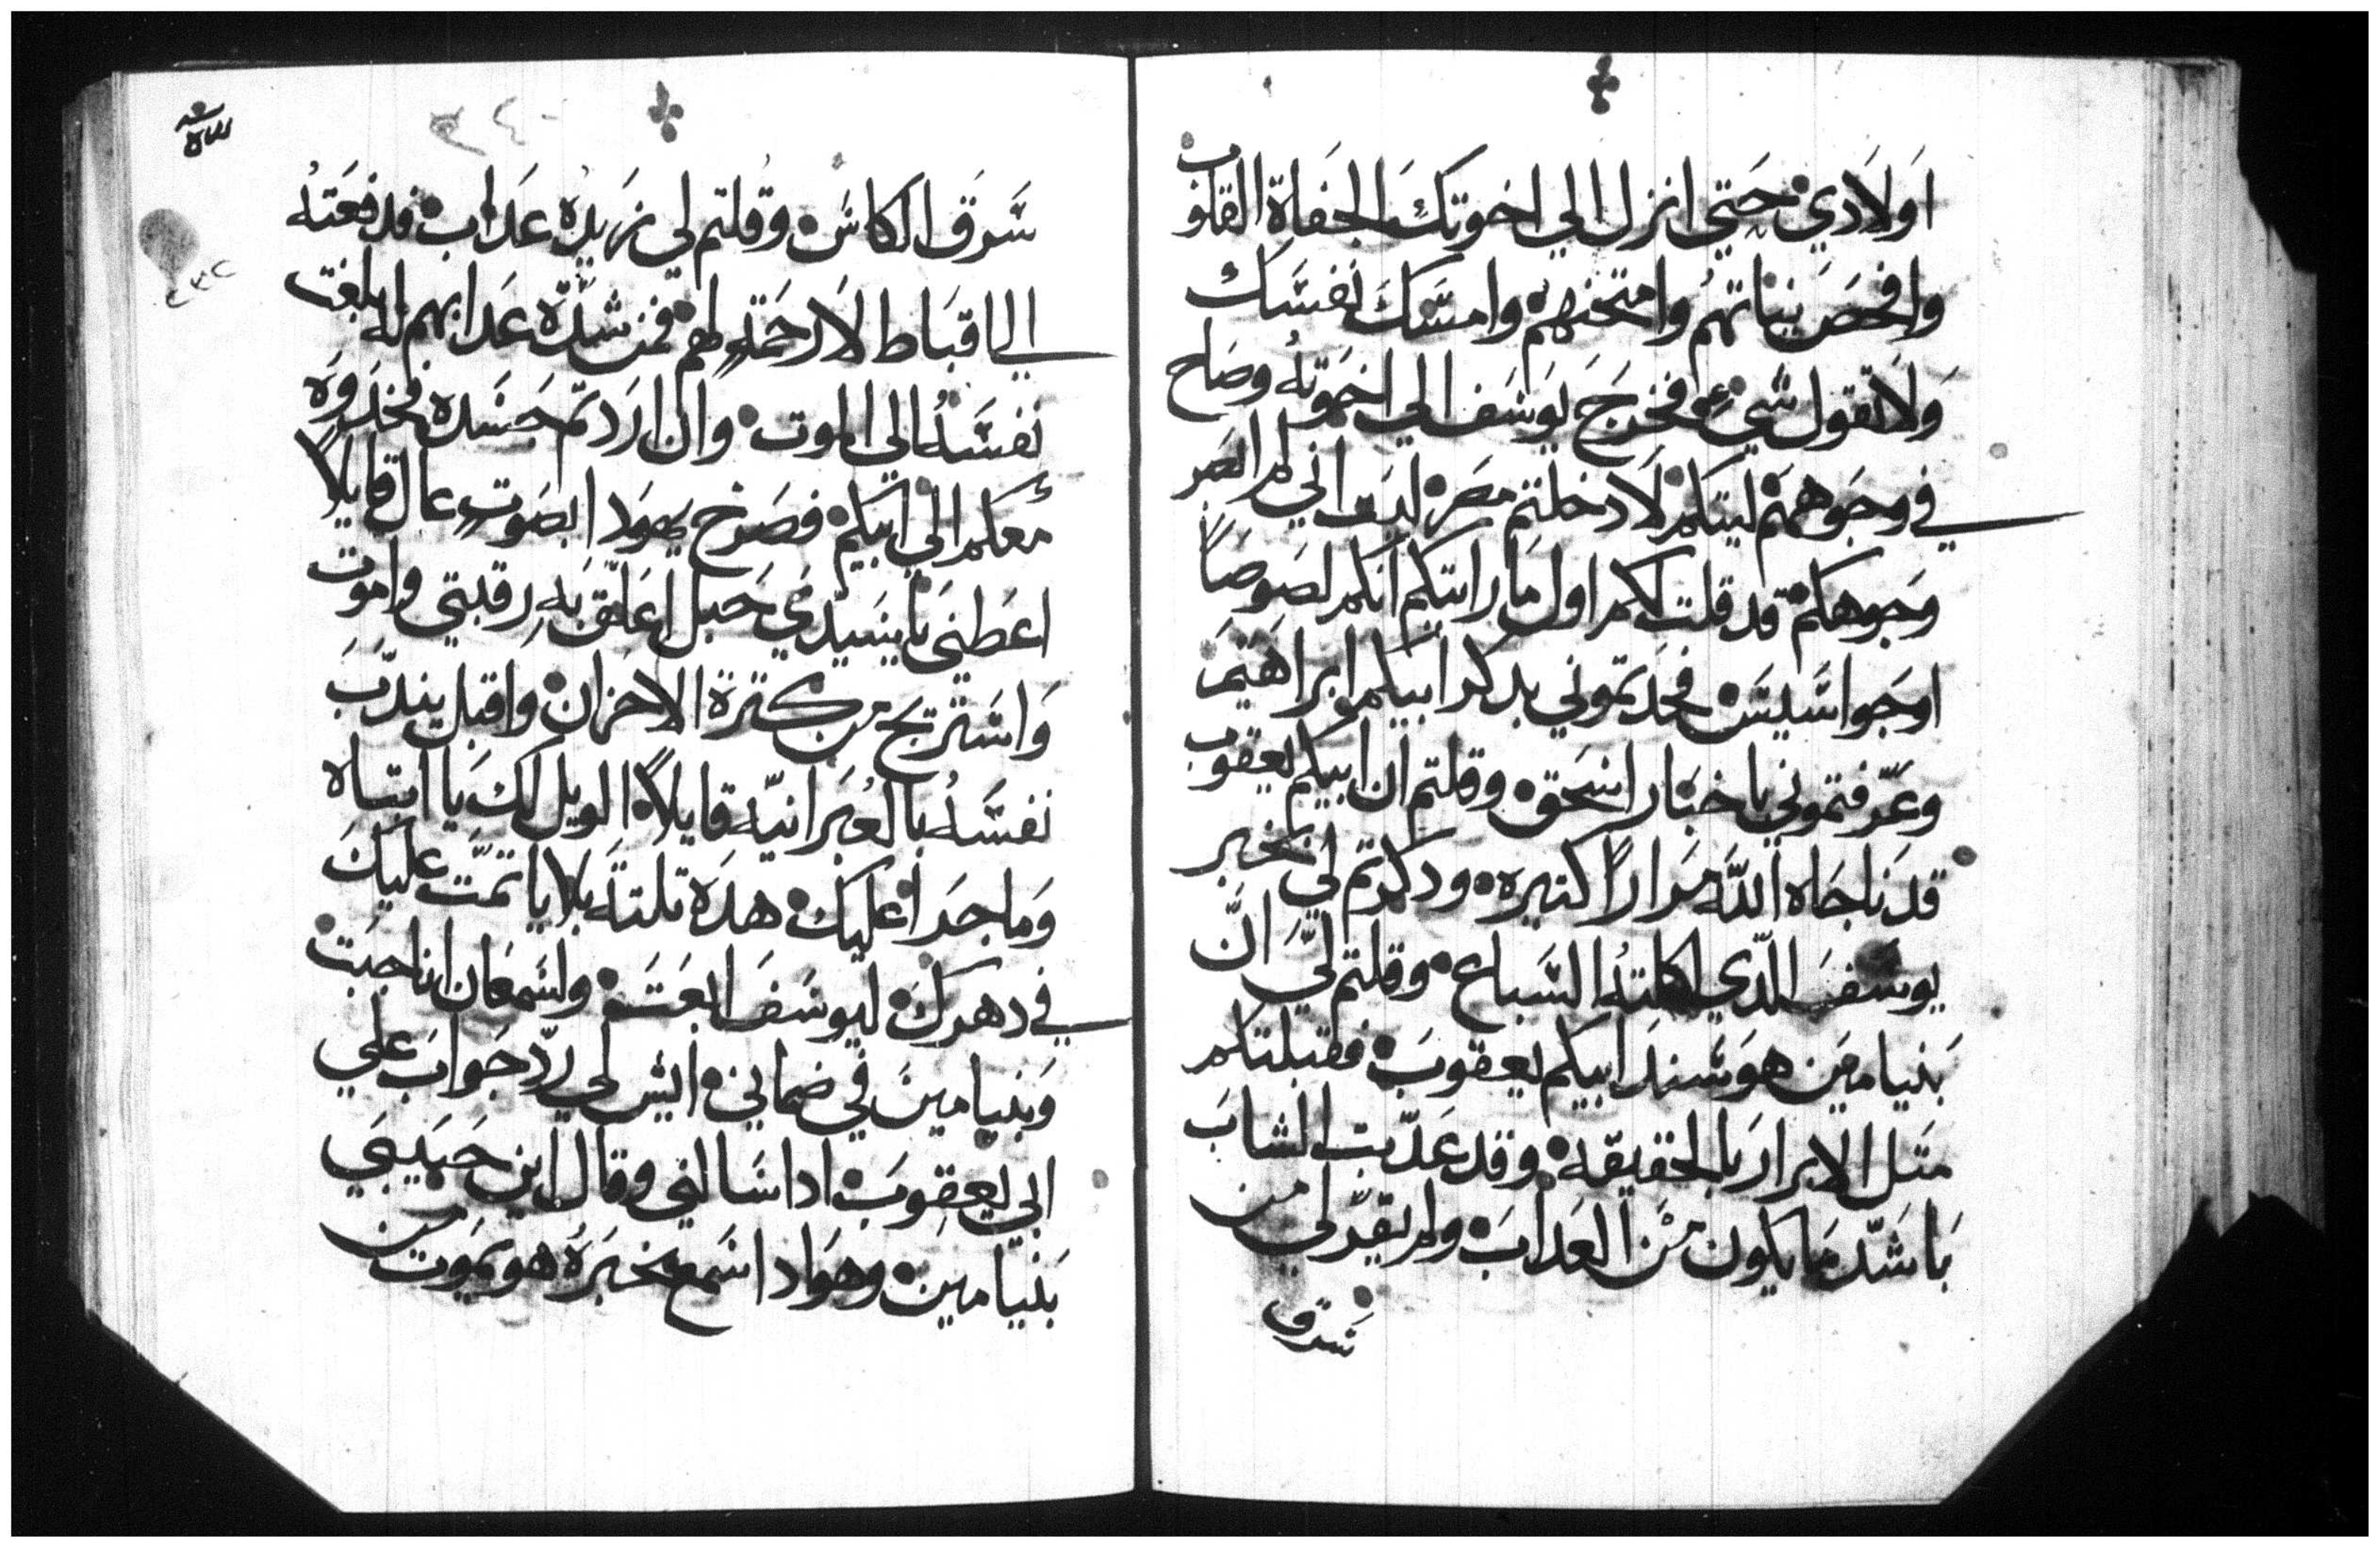 اولادي حتي انزل الي اخوتك الجفاة القلوب
وافحص نياتهم وامتحنهم وامسك نفسك
ولا تقول شي فخرج يوسف الي اخوته وصاح
في وجوههم ليتكم لا دخلتم مصر ليت اني لم انصر
وجوهكم قد قلت لكم اول ما رايتكم انكم لصوصاً
او جواسيس فخدعتموني بدكر ابيكم ابراهيم
وعرفتموني باخبار اسحق وقلتم ان ابيكم يعقوب
قد ناجاه الله مراراً كتيره ودكرتم لي بخبر
يوسف الدي اكلته السباع وقلتم لي ان
بنيامين هو سند ابيكم يعقوب فقبلتكم
متل الابرار بالحقيقه وقد عدبت الشاب
باشد ما يكون من العداب ولم يقر لي من
سرق
سرق الكاس وقلتم لي نزيده عداب فدفعته
الي اقباط لا رحمة لهم فمن شدة عدابهم له بلغت
نفسه الي الموت وان اردتم جسده فخدوه
معكم الي ابيكم فصرخ يهودا بصوت عال قايلاً
اعطني يا سيدي حبل اعلق به رقبتي واموت
واستريح من كترة الاحزان واقبل يندب
نفسه بالعبرانيه قايلاً الويل لك يا ابتاه
وما جدا عليك هده تلتة بلايا تمت عليك
في دهرك ليوسف ابعت ولسمعان انا جبت
وبنيامين في ضماني ايش لي رد جواب علي
ابي يعقوب ادا سالني وقال اين حبيبي
بنيامين وهو اد اسمع بخبره هو يموت من